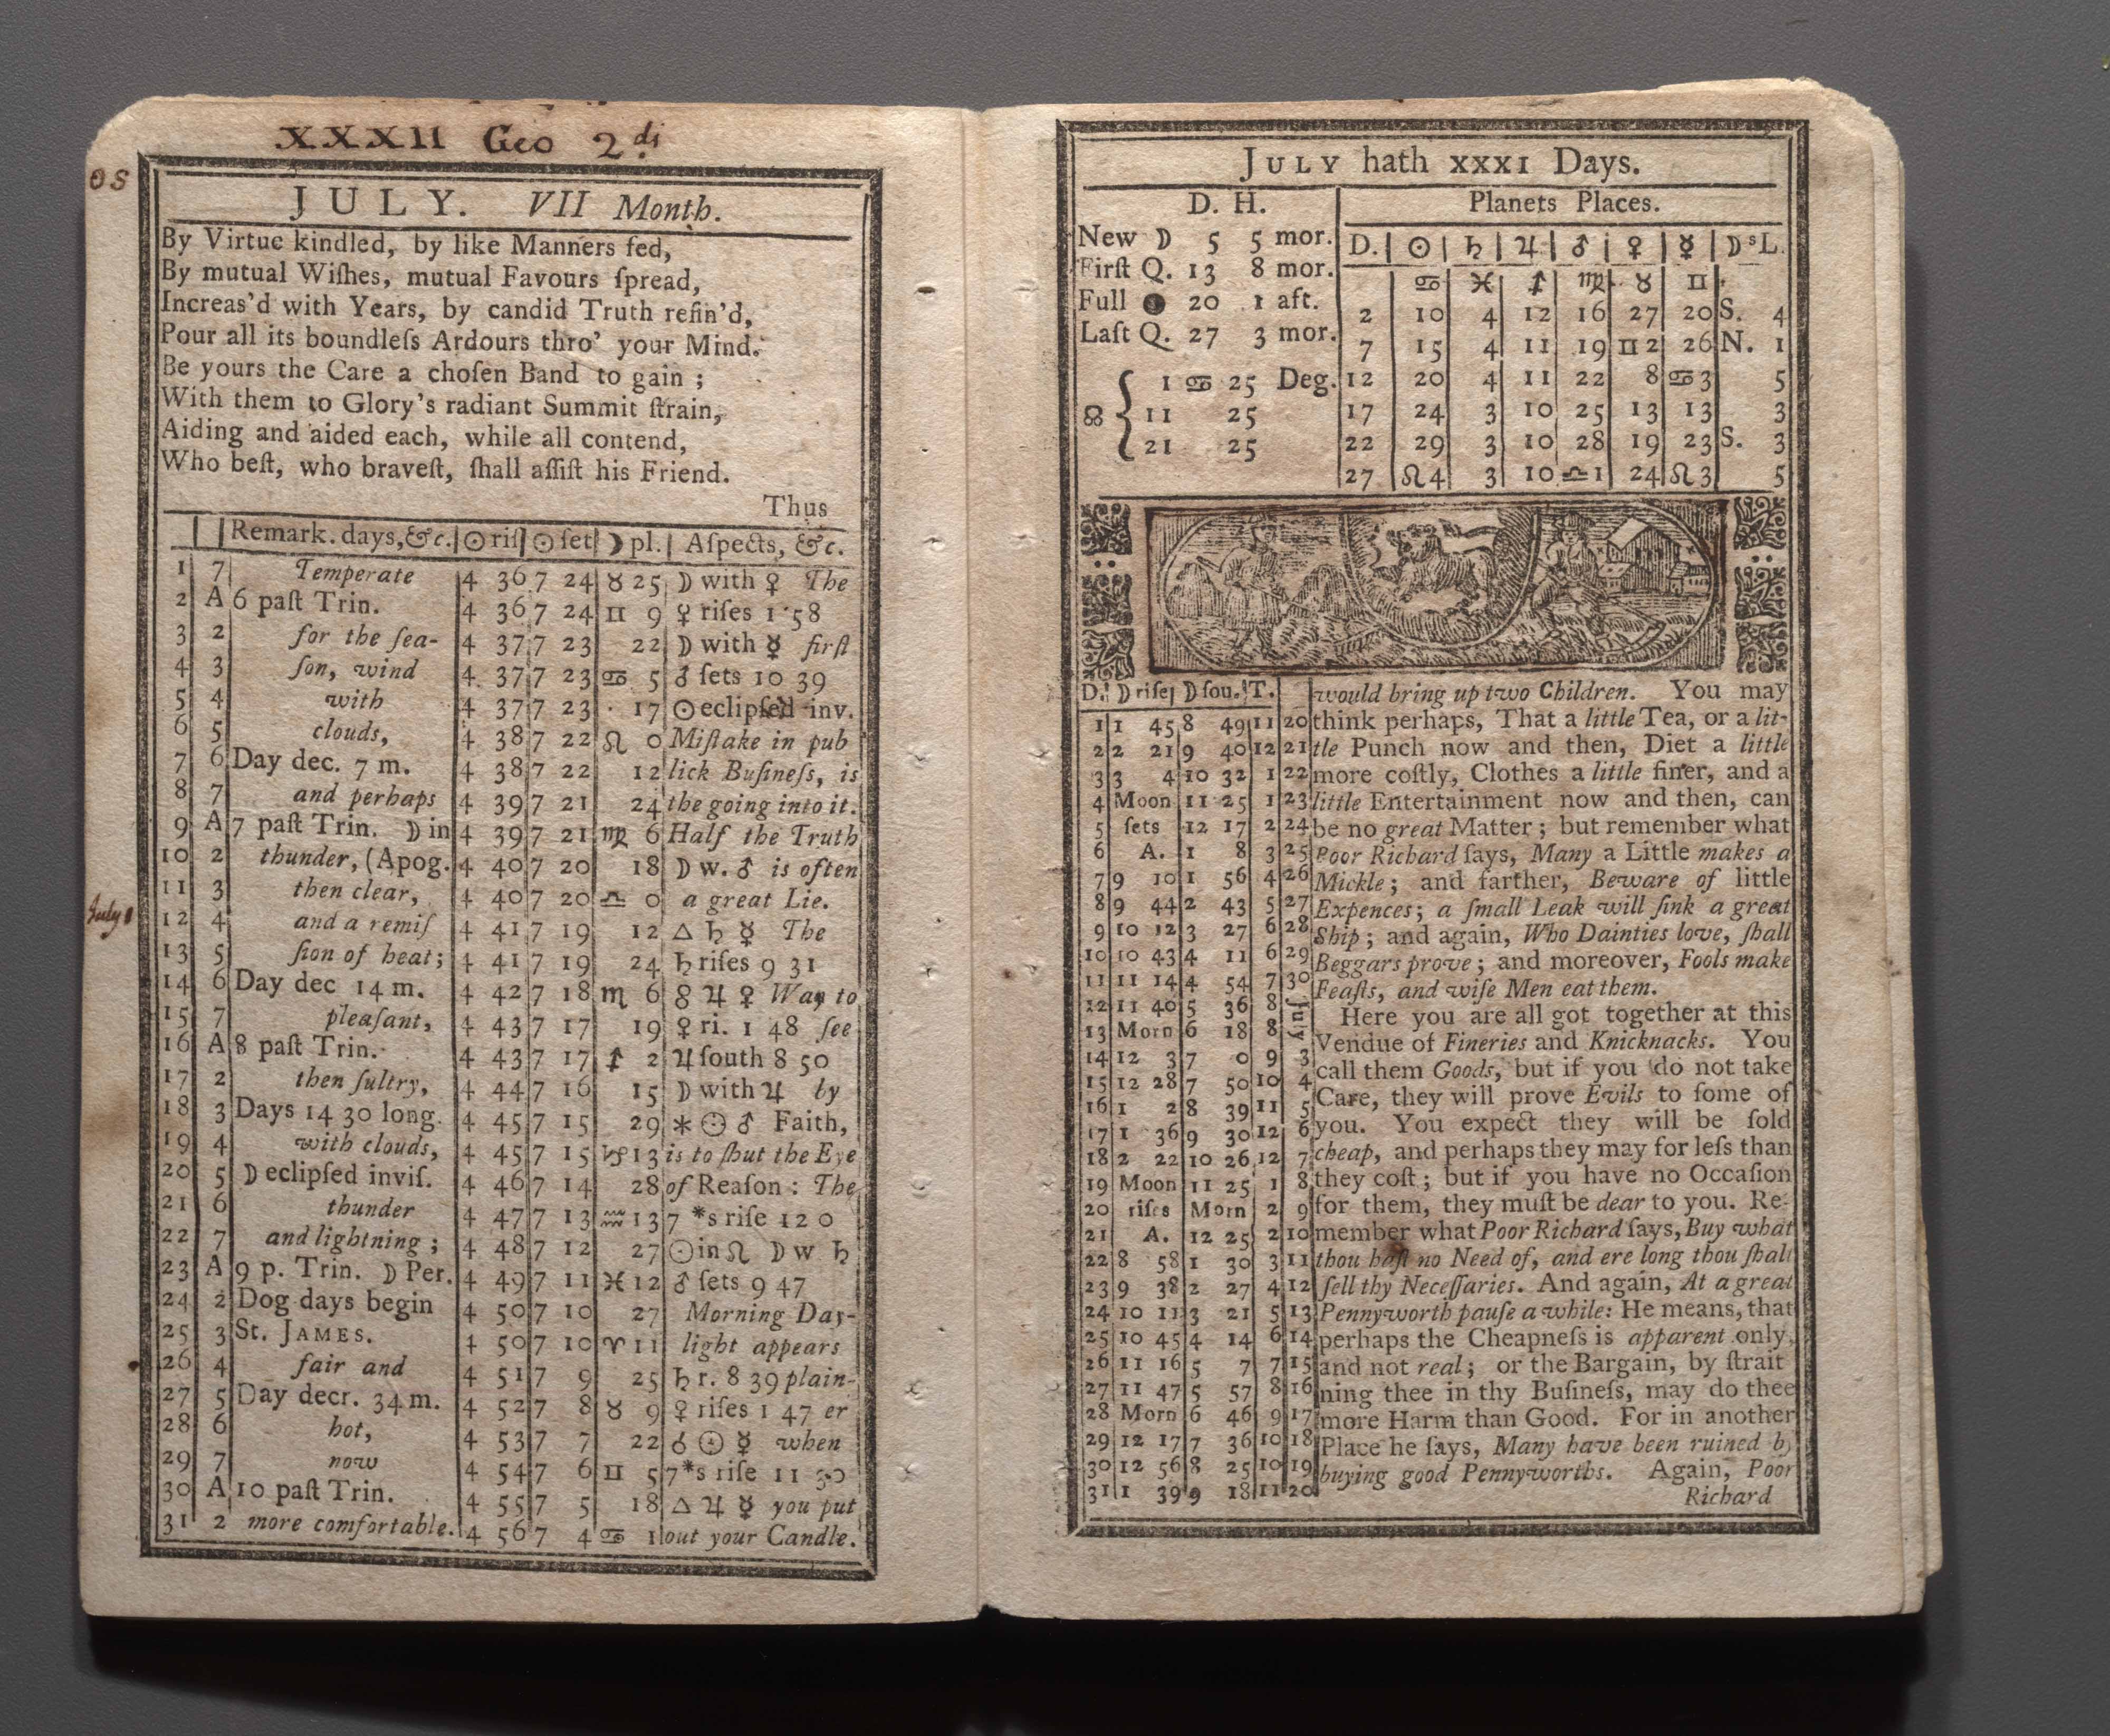 XXXII Geo 2di
OS
JULY. VII Month.
By Virtue kindled, by like Manners fed,
By mutual Wiſhes, mutual Favours ſpread,
Increas'd with Years, by candid Truth refin'd,
Pour all its boundleſs Ardours thro' your Mind.
Be yours the Care a choſen Band to gain ;
With them to Glory's radiant Summit ſtrain,
Aiding and aided each, while all contend,
Who beſt, who braveſt, ſhall aſſiſt his Friend.
Thus
Remark. days, &c. ☉ riſ ☉ ſet ☽ pl. Aſpects, &c.
1 7 Temperate 4 36 7 24 ♉ 25 ☽ with ♀ The
2 A 6 paſt Trin. 4 36 7 24 ♊ 9 ♀ riſes 1 58
3 2 for the ſea- 4 37 7 23 22 ☽ with ☿ firſt
4 3 ſon, wind 4 37 7 23 ♋ 5 ♂ ſets 10 39
5 4 with 4 37 7 23 17 ☉ eclipſed inv.
6 5 clouds, 4 38 7 22 ♌ 0 Miſtake in pub
7 6 Day dec. 7 m. 4 38 7 22 12 lick Buſineſs, is
8 7 and perhaps 4 39 7 21 24 the going into it.
9 A 7 paſt Trin. ☽ in 4 39 7 21 ♍ 6 Half the Truth
10 2 thunder, (Apog. 4 40 7 20 18 ☽ w. ♂ is often
11 3 then clear, 4 40 7 20 ♎ 0 a great Lie.
July
12 4 and a remiſ 4 41 7 19 12 △ ♄ ☿ The
13 5 ſion of heat; 4 41 7 19 24 ♄ riſes 9 31
14 6 Day dec 14 m. 4 42 7 18 ♏ 6 ☍ ♃ ♀ Way to
15 7 pleaſant, 4 43 7 17 19 ♀ ri. 1 48 ſee
16 A 8 paſt Trin. 4 43 7 17 ♐ 2 ♃ ſouth 8 50
17 2 then ſultry, 4 44 7 16 15 ☽ with ♃ by
18 3 Days 14 30 long. 4 45 7 15 29 ⚹ ☉ ♂ Faith,
19 4 with clouds, 4 45 7 15 ♑ 13 is to ſhut the Eye
20 5 ☽ eclipſed inviſ. 4 46 7 14 28 of Reaſon : The
21 6 thunder 4 47 7 13 ♒ 13 7 *s riſe 12 0
22 7 and lightning ; 4 48 7 12 27 ☉ in ♌ ☽ w ♄
23 A 9 p. Trin. ☽ Per. 4 49 7 11 ♓ 12 ♂ ſets 9 47
24 2 Dog days begin 4 50 7 10 27 Morning Day-
25 3 St. JAMES. 4 50 7 10 ♈ 11 light appears
26 4 fair and 4 51 7 9 25 ♄ r. 8 39 plain-
27 5 Day decr. 34 m. 4 52 7 8 ♉ 9 ♀ riſes 1 47 er
28 6 hot, 4 53 7 7 22 ☌ ☉ ☿ when
29 7 now 4 54 7 6 ♊ 5 7 *s riſe 11 30
30 A 10 paſt Trin. 4 55 7 5 18 △ ♃ ☿ you put
31 2 more comfortable. 4 56 7 4 ♋ 1 out your Candle.
JULY hath XXXI Days.
D. H.
New ☽ 5 5 mor.
Firſt Q. 13 8 mor.
Full ● 20 1 aft.
Laſt Q. 27 3 mor.
1 ♋ 25 Deg.
☊ { 11 25
21 25
Planets Places.
D. ☉ ♄ ♃ ♂ ♀ ☿ ☽ s L.
♋ ♓ ♐ ♍ ♉ ♊
2 10 4 12 16 27 20 S. 4
7 15 4 11 19 ♊ 2 26 N. 1
12 20 4 11 22 8 ♋ 3 5
17 24 3 10 25 13 13 3
22 29 3 10 28 19 23 S. 3
27 ♌ 4 3 10 ♎ 1 24 ♌ 3 5
D. ☽ riſe ☽ ſou. T.
1 1 45 8 49 11 20
2 2 21 9 40 12 21
3 3 4 10 32 1 22
4 Moon 11 25 1 23
5 ſets 12 17 2 24
6 A. 1 8 3 25
7 9 10 1 56 4 26
8 9 44 2 43 5 27
9 10 12 3 27 6 28
10 10 43 4 11 6 29
11 11 14 4 54 7 30
12 11 40 5 36 8 July
13 Morn 6 18 8
14 12 3 7 0 9 3
15 12 28 7 50 10 4
16 1 2 8 39 11 5
17 1 36 9 30 12 6
18 2 22 10 26 12 7
19 Moon 11 25 1 8
20 riſes Morn 2 9
21 A. 12 25 2 10
22 8 58 1 30 3 11
23 9 38 2 27 4 12
24 10 11 3 21 5 13
25 10 45 4 14 6 14
26 11 16 5 7 7 15
27 11 47 5 57 8 16
28 Morn 6 46 9 17
29 12 17 7 36 10 18
30 12 56 8 25 10 19
31 1 39 9 18 11 20
would bring up two Children. You may
think perhaps, That a little Tea, or a lit-
tle Punch now and then, Diet a little
more coſtly, Clothes a little finer, and a
little Entertainment now and then, can
be no great Matter ; but remember what
Poor Richard ſays, Many a Little makes a
Mickle ; and farther, Beware of little
Expences ; a ſmall Leak will ſink a great
Ship ; and again, Who Dainties love, ſhall
Beggars prove ; and moreover, Fools make
Feaſts, and wiſe Men eat them.
Here you are all got together at this
Vendue of Fineries and Knicknacks. You
call them Goods, but if you do not take
Care, they will prove Evils to ſome of
you. You expect they will be ſold
cheap, and perhaps they may for leſs than
they coſt ; but if you have no Occaſion
for them, they muſt be dear to you. Re-
member what Poor Richard ſays, Buy what
thou haſt no Need of, and ere long thou ſhalt
ſell thy Neceſſaries. And again, At a great
Pennyworth pauſe a while: He means, that
perhaps the Cheapneſs is apparent only,
and not real ; or the Bargain, by ſtrait
ning thee in thy Buſineſs, may do thee
more Harm than Good. For in another
Place he ſays, Many have been ruined by
buying good Pennyworths. Again, Poor
Richard